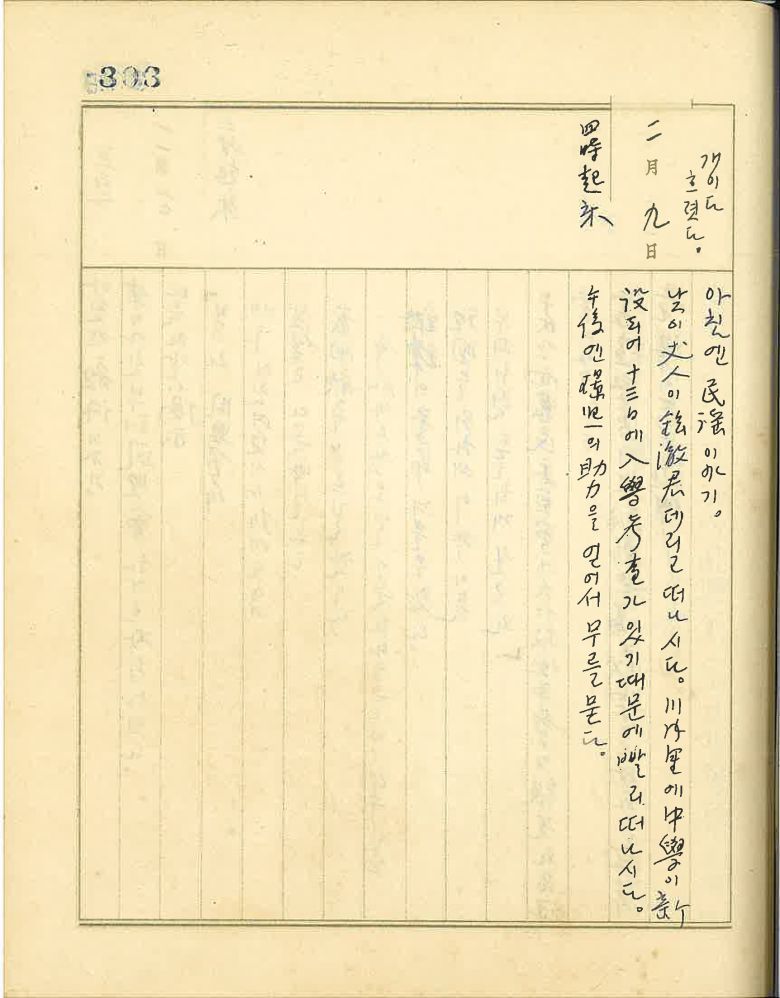 303
개이다
흐렷다.
二月九日
四時起床
아침엔 民謠 이야기.
낮이 丈人이 데리고 떠나시다. 에 中學이 新
設되어 十三日에 入學考査가 있기 때문에 빨리 떠나시다.
午後엔 助力을 얻어서 무를 묻다.